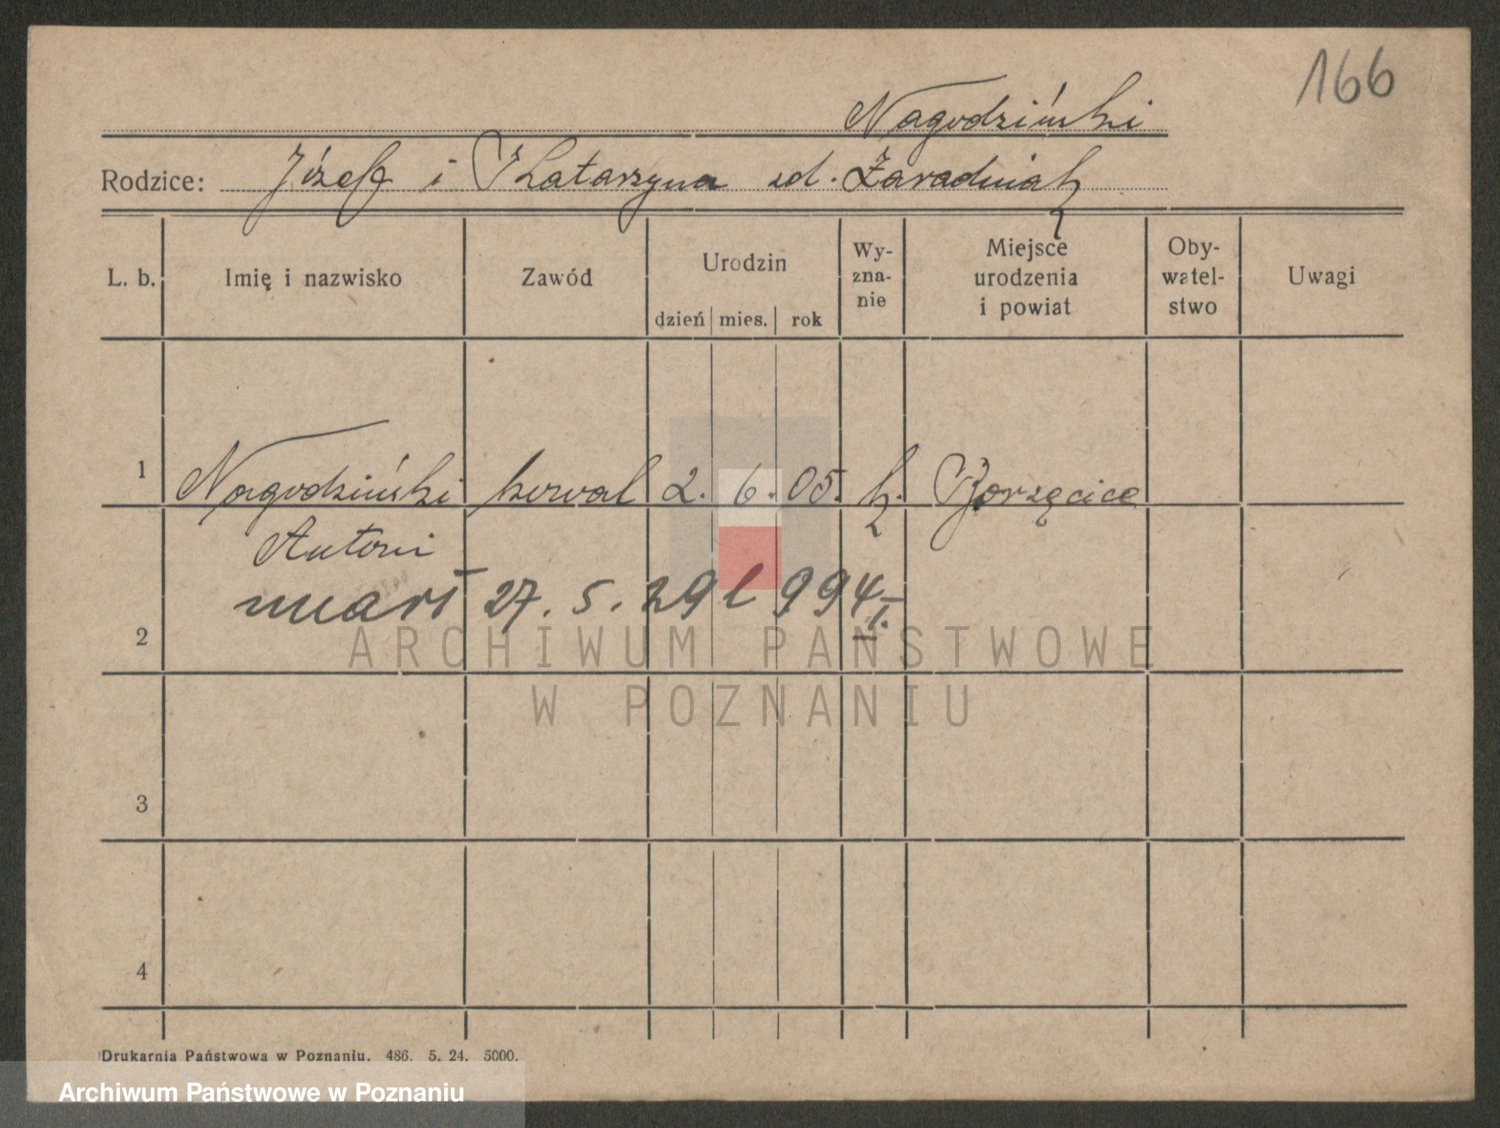 166
Nagodziński
Rodzice: Józef i Katarzyna zd. Zaradniak
L. b. Imię i nazwisko Zawód Urodzin dzień mies. rok Wy-zna-nie Miejsce urodzenia i powiat Oby-watel-stwo Uwagi
1 Nagodziński kowal 2. 6. 05. k. Borzęcice
Antoni
2 umarł 27. 5. 29 l 994
I.
ARCHIWUM PAŃSTWOWE
W POZNANIU
3
4
Drukarnia Państwowa w Poznaniu. 486. 5. 24. 5000.
Archiwum Państwowe w Poznaniu